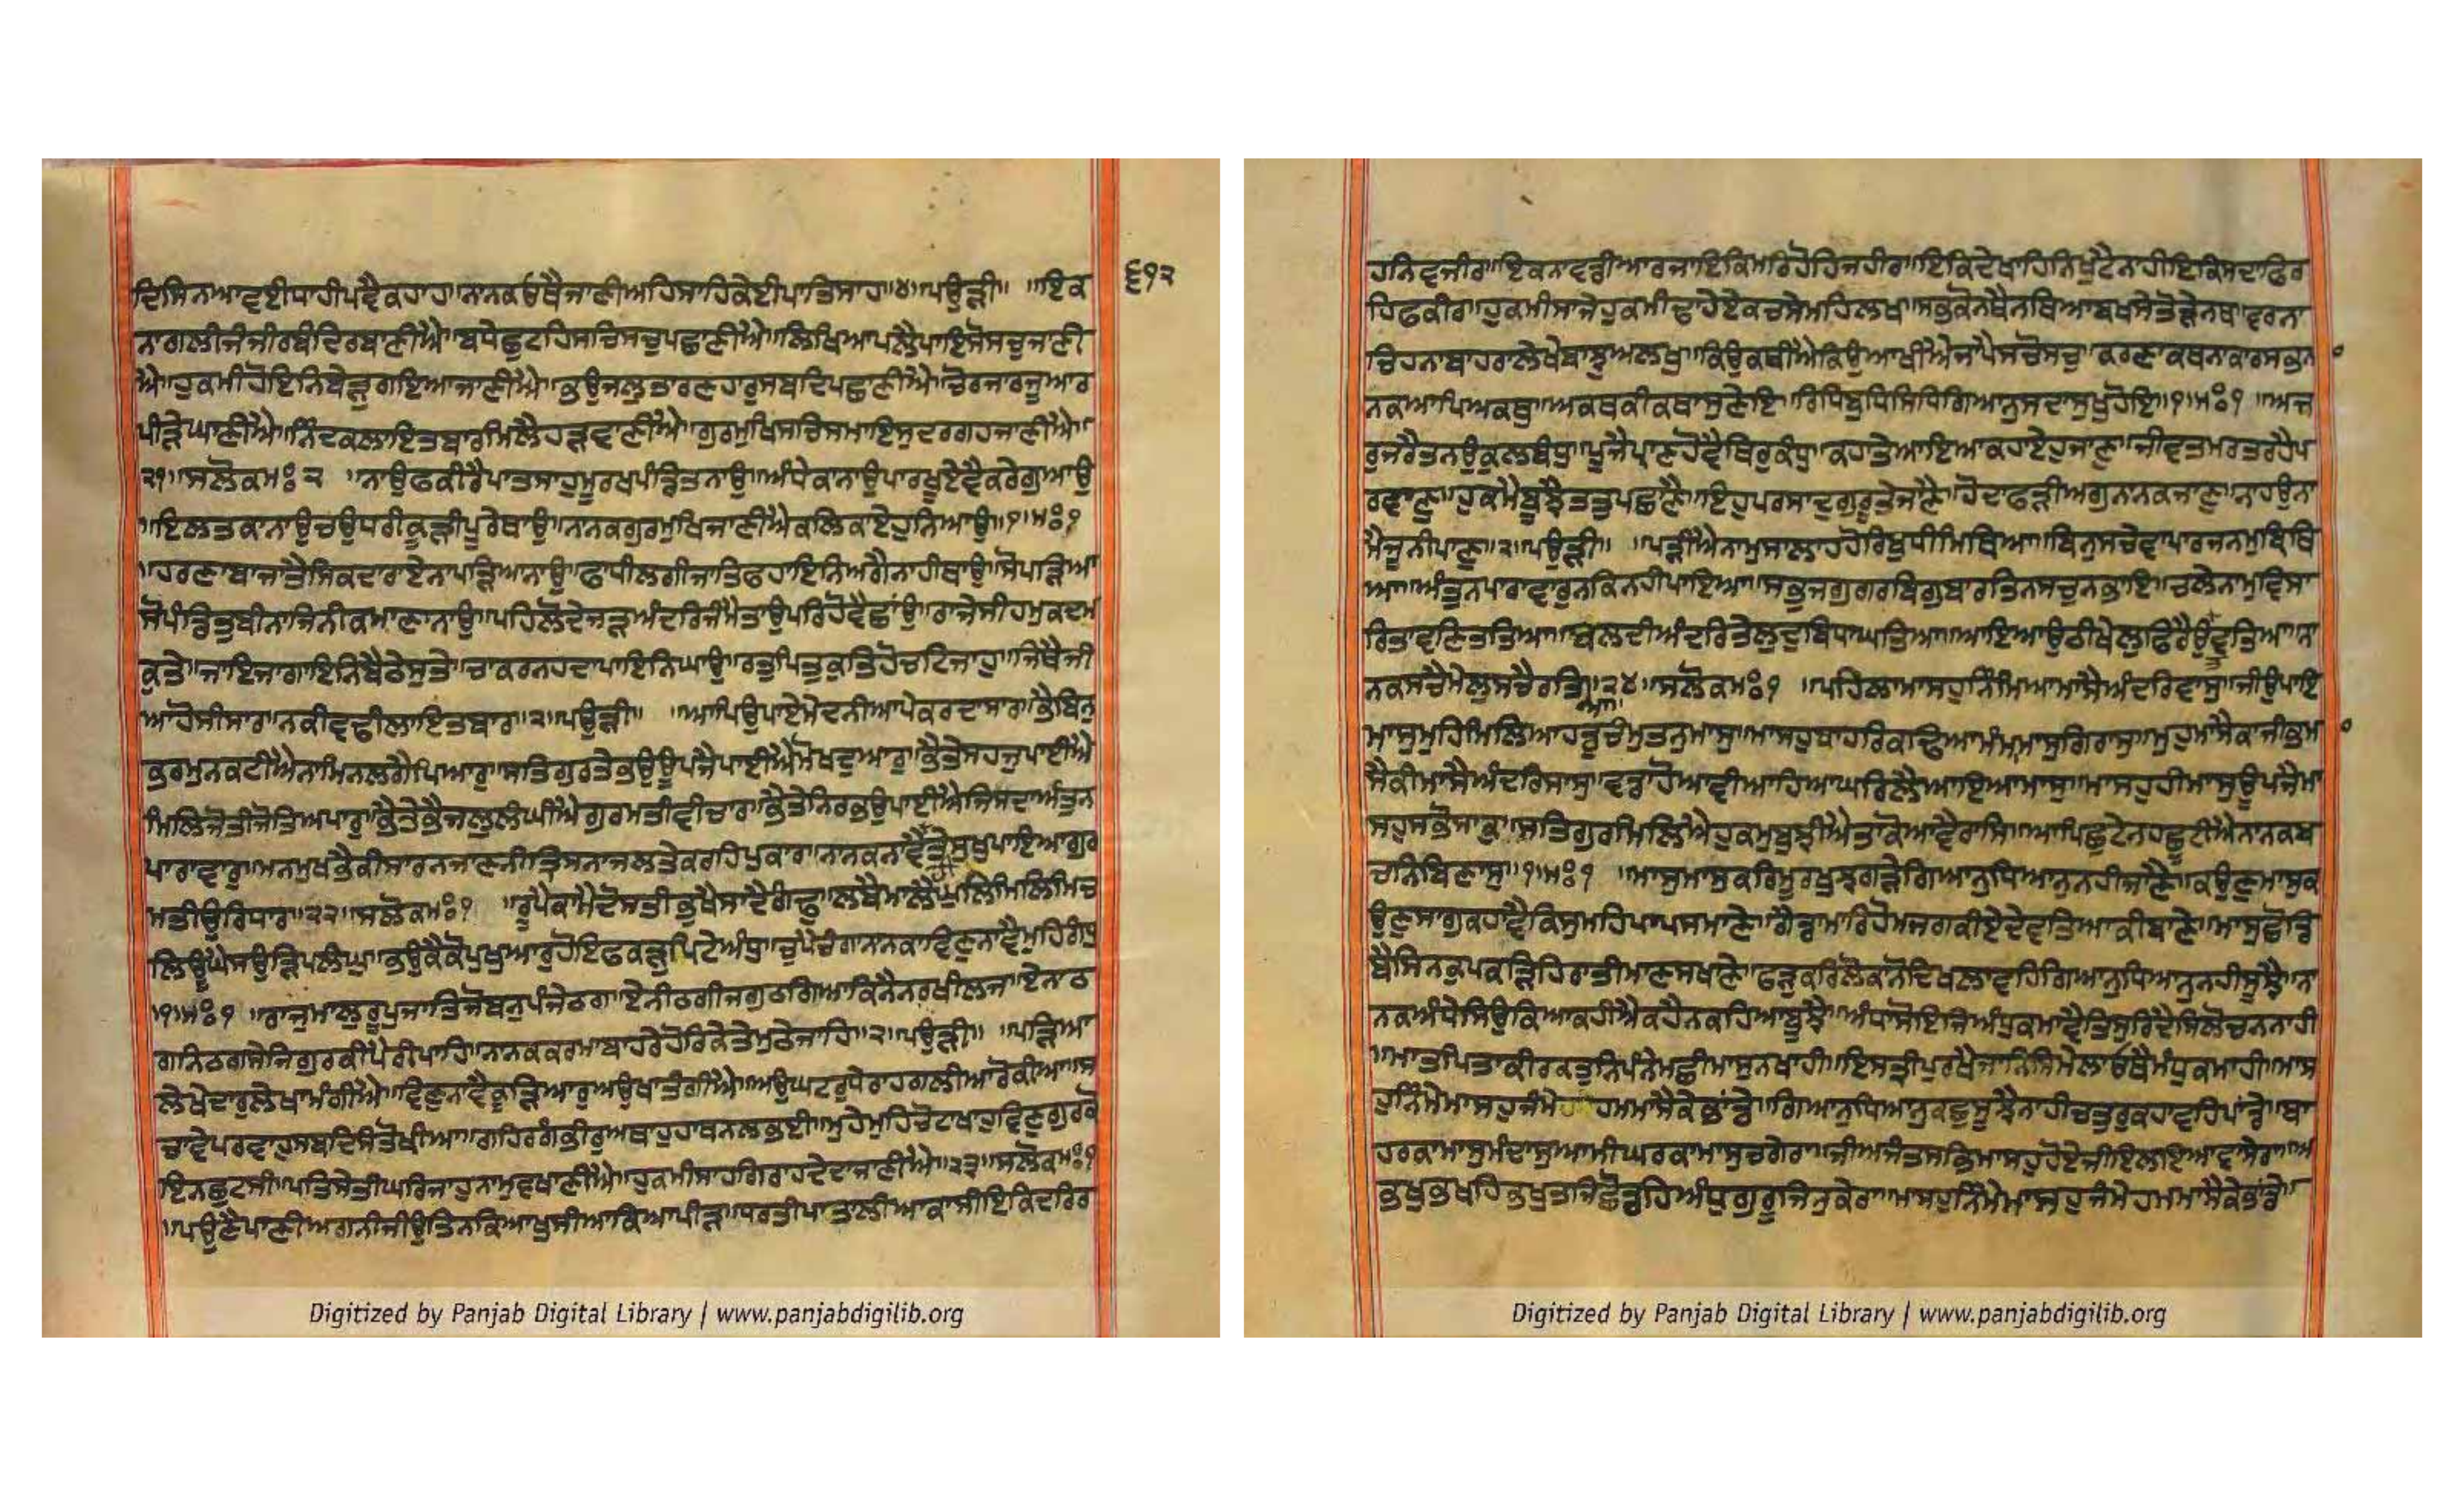 ਦਿਸਿਨਆਵਈਧਾਹੀਪਵੈਕਹਾਹ॥ਨਾਨਕਓਥੈਜਾਣੀਅਹਿਸਾਹਿਕੇਈਪਾਤਿਸਾਹ॥੪॥ਪਉੜੀ॥ ॥ਇਕ
੬੧੨
ਨਾਗਲੀਜੰਜੀਰਬੰਦਿਰਬਾਣੀਐ॥ਬਧੇਛੁਟਹਿਸਚਿਸਚੁਪਛਾਣੀਐ॥ਲਿਖਿਆਪਲੈਪਾਇਸੋਸਚੁਜਾਣੀ
ਐ॥ਹੁਕਮੀਹੋਇਨਿਬੇੜੁਗਇਆਜਾਣੀਐ॥ਭਉਜਲੁਤਾਰਣਹਾਰੁਸਬਦਿਪਛਾਣੀਐ॥ਚੋਰਜਾਰਜੂਆਰ
ਪੀੜੇਘਾਣੀਐ॥ਨਿੰਦਕਲਾਇਤਬਾਰਮਿਲੈਹੜਵਾਣੀਐ॥ਗੁਰਮੁਖਿਸਚਿਸਮਾਇਸੁਦਰਗਹਜਾਣੀਐ॥
੨੧॥ਸਲੋਕਮਃ੨ ॥ਨਾਉਫਕੀਰੈਪਾਤਸਾਹੁਮੂਰਖਪੰਡਿਤਨਾਉ॥ਅੰਧੇਕਾਨਾਉਪਾਰਖੂਏਵੈਕਰੇਗੁਆਉ
॥ਇਲਤਕਾਨਾਉਚਉਧਰੀਕੂੜੀਪੂਰੇਥਾਉ॥ਨਾਨਕਗੁਰਮੁਖਿਜਾਣੀਐਕਲਿਕਾਏਹੁਨਿਆਉ॥੧॥ਮਃ੧
॥ਹਰਣਾਬਾਜਾਤੈਸਿਕਦਾਰਾਏਨਾਪੜ੍ਹਿਆਨਾਉ॥ਫਾਂਧੀਲਗੀਜਾਤਿਫਹਾਇਨਿਅਗੈਨਾਹੀਥਾਉ॥ਸੋਪੜਿਆ
ਸੋਪੰਡਿਤੁਬੀਨਾਜਿਨੀਕਮਾਣਾਨਾਉ॥ਪਹਿਲੋਦੇਜੜਅੰਦਰਿਜੰਮੈਤਾਉਪਰਿਹੋਵੈਛਾਂਉ॥ਰਾਜੇਸੀਹਮੁਕਦਮ
ਕੁਤੇ॥ਜਾਇਜਗਾਇਨਿਬੈਠੇਸੁਤੇ॥ਚਾਕਰਨਹਦਾਪਾਇਨਿਘਾਉ॥ਰਤੁਪਿਤੁਕੁਤਿਹੋਚਟਿਜਾਹੁ॥ਜਿਥੈਜੀ
ਆਹੋਸੀਸਾਰ॥ਨਕੀਵਢੀਲਾਇਤਬਾਰ॥੨॥ਪਉੜੀ॥ ॥ਆਪਿਉਪਾਏਮੇਦਨੀਆਪੇਕਰਦਾਸਾਰ॥ਭੈਬਿਨੁ
ਭਰਮੁਨਕਟੀਐਨਾਮਿਨਲਗੈਪਿਆਰੁ॥ਸਤਿਗੁਰਤੇਭਉਊਪਜੈਪਾਈਐਮੋਖਦੁਆਰੁ॥ਭੈਤੇਸਹਜੁਪਾਈਐ
ਮਿਲਿਜੋਤੀਜੋਤਿਅਪਾਰੁ॥ਭੈਤੇਭੈਜਲੁਲੰਘੀਐਗੁਰਮਤੀਵੀਚਾਰ॥ਭੈਤੇਨਿਰਭਉਪਾਈਐਜਿਸਦਾਅੰਤੁਨ
ਪਾਰਾਵਾਰੁ॥ਮਨਮੁਖਭੈਕੀਸਾਰਨਜਾਣਨੀਤ੍ਰਿਸਨਾਜਲਤੇਕਰਹਿਪੁਕਾਰ॥ਨਾਨਕਨਾਵੈਹੀਤੇਸੁਖੁਪਾਇਆਗੁਰ
ਮਤੀਉਰਿਧਾਰ॥੨੨॥ਸਲੋਕਮਃ੧ ॥ਰੂਪੈਕਾਮੈਦੋਸਤੀਭੁਖੈਸਾਦੈਗੰਢੁ॥ਲਬੈਮਾਲੈਘੁਲਿਮਿਲਿਮਿਚ
ਲਿਊਂਘੈਸਉੜਿਪਲੰਘੁ॥ਭਉਕੈਕੋਪੁਖੁਆਰੁਹੋਇਫਕੜੁਪਿਟੇਅੰਧੁ॥ਚੁਪੈਚੰਗਾਨਾਨਕਾਵਿਣੁਨਾਵੈਮੁਹਿਗੰਧੁ
॥੧॥ਮਃ੧ ॥ਰਾਜੁਮਾਲੁਰੂਪੁਜਾਤਿਜੋਬਨੁਪੰਜੇਠਗ॥ਏਨੀਠਗੀਜਗੁਠਗਿਆਕਿਨੈਨਰਖੀਲਜ॥ਏਨਾਠ
ਗਨਿਠਗਸੇਜਿਗੁਰਕੀਪੈਰੀਪਾਹਿ॥ਨਾਨਕਕਰਮਾਬਾਹਰੇਹੋਰਿਕੇਤੇਮੁਠੇਜਾਹਿ॥੨॥ਪਉੜੀ॥ ॥ਪੜਿਆ
ਲੇਖੇਦਾਰੁਲੇਖਾਮੰਗੀਐ॥ਵਿਣੁਨਾਵੈਕੂੜਿਆਰੁਅਉਖਾਤੰਗੀਐ॥ਅਉਘਟਰੁਧੇਰਾਹਗਲੀਆਰੋਕੀਆ॥ਸ
ਚਾਵੇਪਰਵਾਹੁਸਬਦਿਸੰਤੋਖੀਆ॥ਗਹਿਰਗੰਭੀਰੁਅਥਾਹੁਹਾਥਨਲਭਈ॥ਮੁਹੇਮੁਹਿਚੋਟਾਖਾਹੁਵਿਣੁਗੁਰਕੋ
ਇਨਛੁਟਸੀ॥ਪਤਿਸੇਤੀਘਰਿਜਾਹੁਨਾਮੁਵਖਾਣੀਐ॥ਹੁਕਮੀਸਾਹਗਿਰਾਹਦੇਦਾਜਾਣੀਐ॥੨੩॥ਸਲੋਕਮਃ੧
॥ਪਉਣੈਪਾਣੀਅਗਨੀਜੀਉਤਿਨਕਿਆਖੁਸੀਆਕਿਆਪੀੜ॥ਧਰਤੀਪਾਤਾਲੀਆਕਾਸੀਇਕਿਦਰਿਰ
Digitized by Panjab Digital Library | www.panjabdigilib.org
ਹਨਿਵਜੀਰ॥ਇਕਨਾਵਡੀਆਰਜਾਇਕਿਮਰਿਹੋਹਿਜਹੀਰ॥ਇਕਿਦੇਖਾਹਿਨਿਖੁਟੈਨਾਹੀਇਕਿਸਦਾਫਿਰ
ਹਿਫਕੀਰ॥ਹੁਕਮੀਸਾਜੇਹੁਕਮੀਢਾਹੇਏਕਚਸੇਮਹਿਲਖ॥ਸਭੁਕੋਨਥੈਨਥਿਆਬਖਸੇਤੋੜੇਨਥ॥ਵਰਨਾ
ਚਿਹਨਾਬਾਹਰਾਲੇਖੇਬਾਝੁਅਲਖੁ॥ਕਿਉਕਥੀਐਕਿਉਆਖੀਐਜਾਪੈਸਚੋਸਚੁ॥ਕਰਣਾਕਥਨਾਕਾਰਸਭਨਾ
ਨਕਆਪਿਅਕਥੁ॥ਅਕਥਕੀਕਥਾਸੁਣੇਇ॥ਰਿਧਿਬੁਧਿਸਿਧਿਗਿਆਨੁਸਦਾਸੁਖੁਹੋਇ॥੧॥ਮਃ੧ ॥ਅਜ
ਰੁਜਰੈਤਨਉਕੁਲਬੰਧੁ॥ਪੂਜੈਪ੍ਰਾਣਹੋਵੈਥਿਰੁਕੰਧੁ॥ਕਹਾਤੇਆਇਆਕਹਾਏਹੁਜਾਣੁ॥ਜੀਵਤਮਰਤਰਹੈਪ
ਰਵਾਣੁ॥ਹੁਕਮੈਬੂਝੈਤਤੁਪਛਾਣੈ॥ਇਹੁਪਰਸਾਦੁਗੁਰੂਤੇਜਾਣੈ॥ਹੋਂਦਾਫੜੀਅਗੁਨਾਨਕਜਾਣੁ॥ਨਾਹਉਨਾ
ਮੈਜੂਨੀਪਾਣੁ॥੨॥ਪਉੜੀ॥ ॥ਪੜੀਐਨਾਮੁਸਾਲਾਹਹੋਰਿਬੁਧੀਮਿਥਿਆ॥ਬਿਨੁਸਚੇਵਾਪਾਰਜਨਮੁਬਿਰਥਿ
ਆ॥ਅੰਤੁਨਪਾਰਾਵਾਰੁਨਕਿਨਹੀਪਾਇਆ॥ਸਭੁਜਗੁਗਰਬਿਗੁਬਾਰਤਿਨਸਚੁਨਭਾਇ॥ਚਲੇਨਾਮੁਵਿਸਾ
ਰਿਤਾਵਣਿਤਤਿਆ॥ਬਲਦੀਅੰਦਰਿਤੇਲੁਦੁਬਿਧਾਘਤਿਆ॥ਆਇਆਉਠੀਖੇਲੁਫਿਰੈਉਵਤਿਆ॥ਨਾ
ਨਕਸਚੈਮੇਲੁਸਚੈਰਤਿਆ॥੨੪॥ਸਲੋਕਮਃ੧ ॥ਪਹਿਲਾਮਾਸਹੁਨਿੰਮਿਆਮਾਸੈਅੰਦਰਿਵਾਸੁ॥ਜੀਉਪਾਇ
ਮਾਸੁਮੁਹਿਮਿਲਿਆਹਡੁਚੰਮੁਤਨੁਮਾਸੁ॥ਮਾਸਹੁਬਾਹਰਿਕਢਿਆਮੰਮਾਮਾਸੁਗਿਰਾਸੁ॥ਮੁਹੁਮਾਸੈਕਾਜੀਭਮਾ
ਸੈਕੀਮਾਸੈਅੰਦਰਿਸਾਸੁ॥ਵਡਾਹੋਆਵੀਆਹਿਆਘਰਿਲੈਆਇਆਮਾਸੁ॥ਮਾਸਹੁਹੀਮਾਸੁਊਪਜੈਮਾ
ਸਹੁਸਭੋਸਾਕੁ॥ਸਤਿਗੁਰਮਿਲਿਐਹੁਕਮੁਬੁਝੀਐਤਾਕੋਆਵੈਰਾਸਿ॥ਆਪਿਛੁਟੇਨਹਛੂਟੀਐਨਾਨਕਬ
ਚਨਿਬਿਣਾਸੁ॥੧॥ਮਃ੧ ॥ਮਾਸੁਮਾਸੁਕਰਿਮੂਰਖੁਝਗੜੇਗਿਆਨੁਧਿਆਨੁਨਹੀਜਾਣੈ॥ਕਉਣੁਮਾਸੁਕ
ਉਣੁਸਾਗੁਕਹਾਵੈਕਿਸੁਮਹਿਪਾਪਸਮਾਣੇ॥ਗੈਂਡਾਮਾਰਿਹੋਮਜਗਕੀਏਦੇਵਤਿਆਕੀਬਾਣੇ॥ਮਾਸੁਛੋਡਿ
ਬੈਸਿਨਕੁਪਕੜਿਹਿਰਾਤੀਮਾਣਸਖਾਣੇ॥ਫੜੁਕਰਿਲੋਕਾਨੋਦਿਖਲਾਵਹਿਗਿਆਨੁਧਿਆਨੁਨਹੀਸੂਝੈ॥ਨਾ
ਨਕਅੰਧੇਸਿਉਕਿਆਕਹੀਐਕਹੈਨਕਹਿਆਬੂਝੈ॥ਅੰਧਾਸੋਇਜਿਅੰਧੁਕਮਾਵੈਤਿਸੁਰਿਦੈਸਿਲੋਚਨਨਾਹੀ
॥ਮਾਤਪਿਤਾਕੀਰਕਤੁਨਿਪੰਨੇਮਛੀਮਾਸੁਨਖਾਂਹੀ॥ਇਸਤ੍ਰੀਪੁਰਖੈਜਾਂਨਿਸਿਮੇਲਾਓਥੈਮੰਧੁਕਮਾਹੀ॥ਮਾਸ
ਹੁਨਿੰਮੇਮਾਸਹੁਜੰਮੇ ਹਮਮਾਸੈਕੇਭਾਂਡੇ॥ਗਿਆਨੁਧਿਆਨੁਕਛੁਸੂਝੈਨਾਹੀਚਤੁਰੁਕਹਾਵਹਿਪਾਂਡੇ॥ਬਾ
ਹਰਕਾਮਾਸੁਮੰਦਾਸੁਆਮੀਘਰਕਾਮਾਸੁਚੰਗੇਰਾ॥ਜੀਅਜੰਤਸਭਿਮਾਸਹੁਹੋਏਜੀਇਲਇਆਵਾਸੇਰਾ॥ਅ
ਭਖੁਭਖਹਿਭਖੁਤਜਿਛੋਡਹਿਅੰਧੁਗੁਰੂਜਿਨਕੇਰਾ॥ਮਾਸਹੁਨਿੰਮੇਮਾਸਹੁਜੰਮੇਹਮਮਾਸੈਕੇਭਾਂਡੇ॥
Digitized by Panjab Digital Library | www.panjabdigilib.org